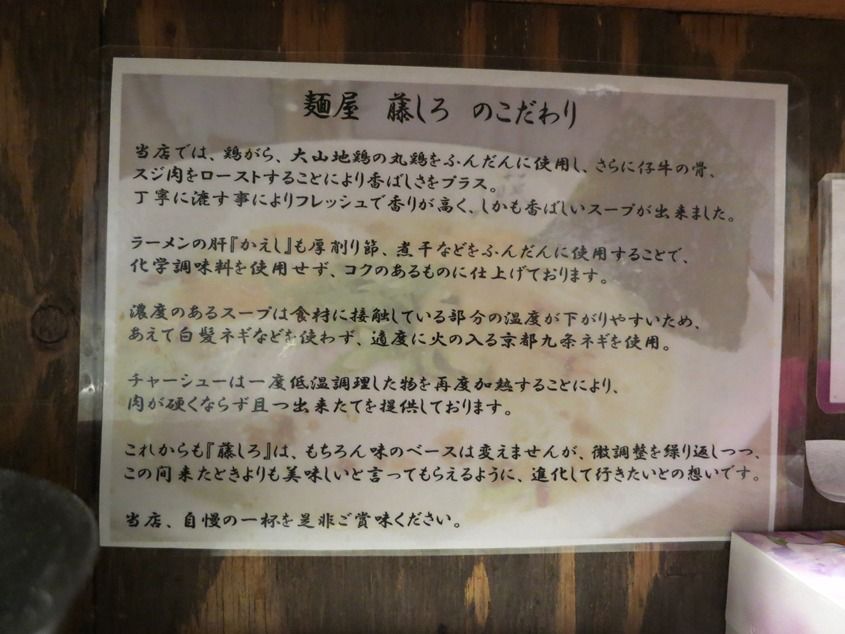 麺屋 藤しろ のこだわり
当店では、鶏がら、大山地鶏の丸鶏をふんだんに使用し、さらに仔牛の骨、
スジ肉をローストすることにより香ばしさをプラス。
丁寧に漉す事によりフレッシュで香りが高く、しかも香ばしいスープが出来ました。
ラーメンの肝『かえし』も厚削り節、煮干などをふんだんに使用することで、
化学調味料を使用せず、コクのあるものに仕上げております。
濃度のあるスープは食材に接触している部分の温度が下がりやすいため、
あえて白髪ネギなどを使わず、適度に火の入る京都九条ネギを使用。
チャーシューは一度低温調理した物を再度加熱することにより、
肉が硬くならず且つ出来たてを提供しております。
これからも『藤しろ』は、もちろん味のベースは変えませんが、微調整を繰り返しつつ、
この間来たときよりも美味しいと言ってもらえるように、進化して行きたいとの想いです。
当店、自慢の一杯を是非ご賞味ください。